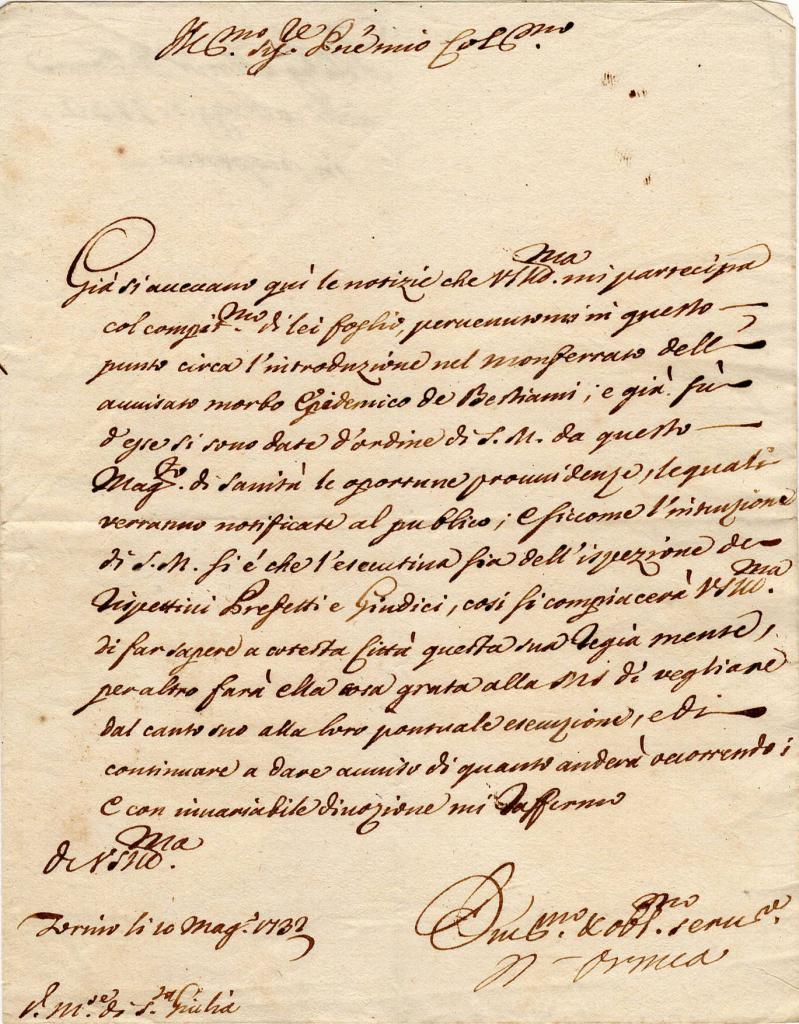 Ill.mo Sig.re Pne mio Col.mo
Già si aueuano quì le notizie che VSIll.ma mi partecipa
col compit.mo di lei foglio, peruenutomi in questo
punto circa l'introduzione nel Monferrato dell'
auuisato morbo Epidemico de Bestiami; e già sù
d'esse si sono date d'ordine di S. M. da questo
Mag.to di Sanità le oportune prouuidenze, le quali
verranno notificate al publico; e siccome l'intenzione
di S. M. si é che l'esecutiua sia dell'ispezione de
rispettiui Prefetti e Giudici, così si compiacerà VSIll.ma
di far sapere a cotesta Città questa sua regia mente,
per altro farà ella cosa grata alla Ms di vegliare
dal canto suo alla loro pontuale esecuzione, e di
continuare a dare auuiso di quanto anderà occorrendo;
E con inuariabile diuozione mi raffermo
di VSIll.ma
Torino li 10 Mag.o 1732
Diu.mo & obl.mo seru.re
D'Ormea
S.r M.se di S.ta Giulia